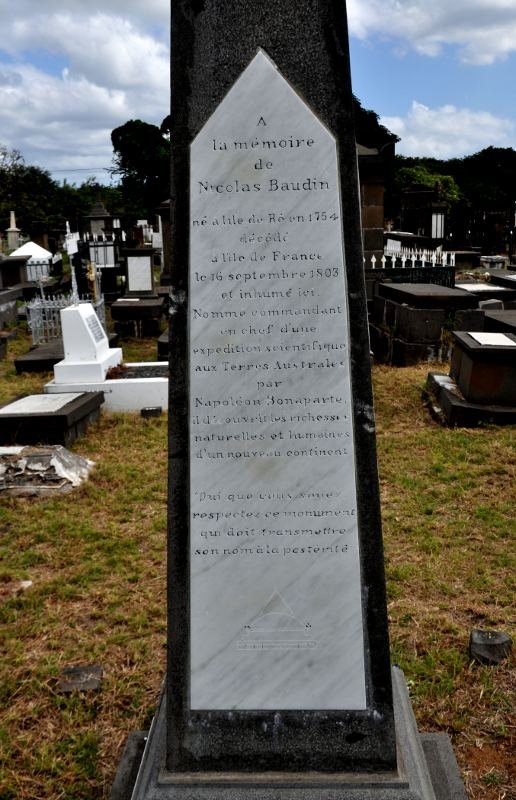 A
la mémoire
de
Nicolas Baudin
né a l'ile de Ré en 1754
décédé
a l'ile de France
le 16 septembre 1803
et inhumé ici.
Nomme commandant
en chef d'une
expedition scientifique
aux Terres Australes
par
Napoléon Bonaparte,
il découvrit les richesses
naturelles et humaines
d'un nouveau continent
Qui que vous soyez
respectez ce monument
qui doit transmettre
son nom à la postérité